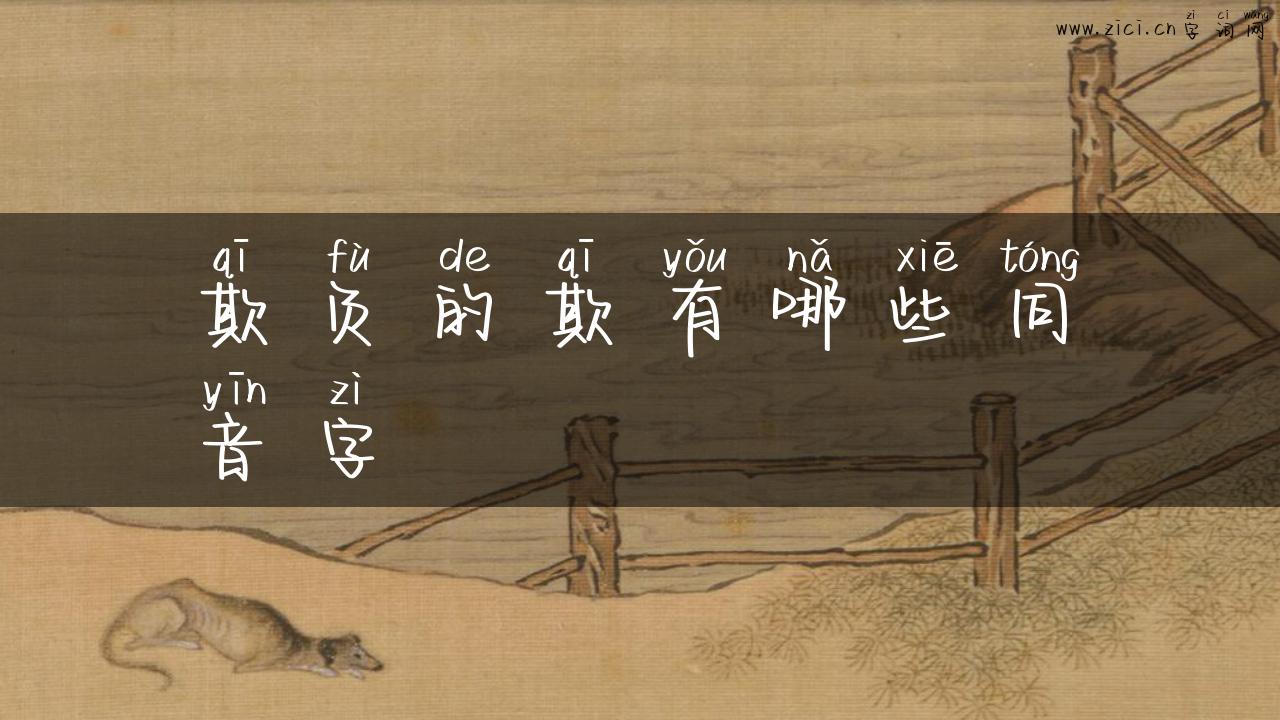 zì cí wǎng
www.zici.cn字词网
qī fù de qī yǒu nǎ xiē tóng
欺负的欺有哪些同
yīn zì
音字